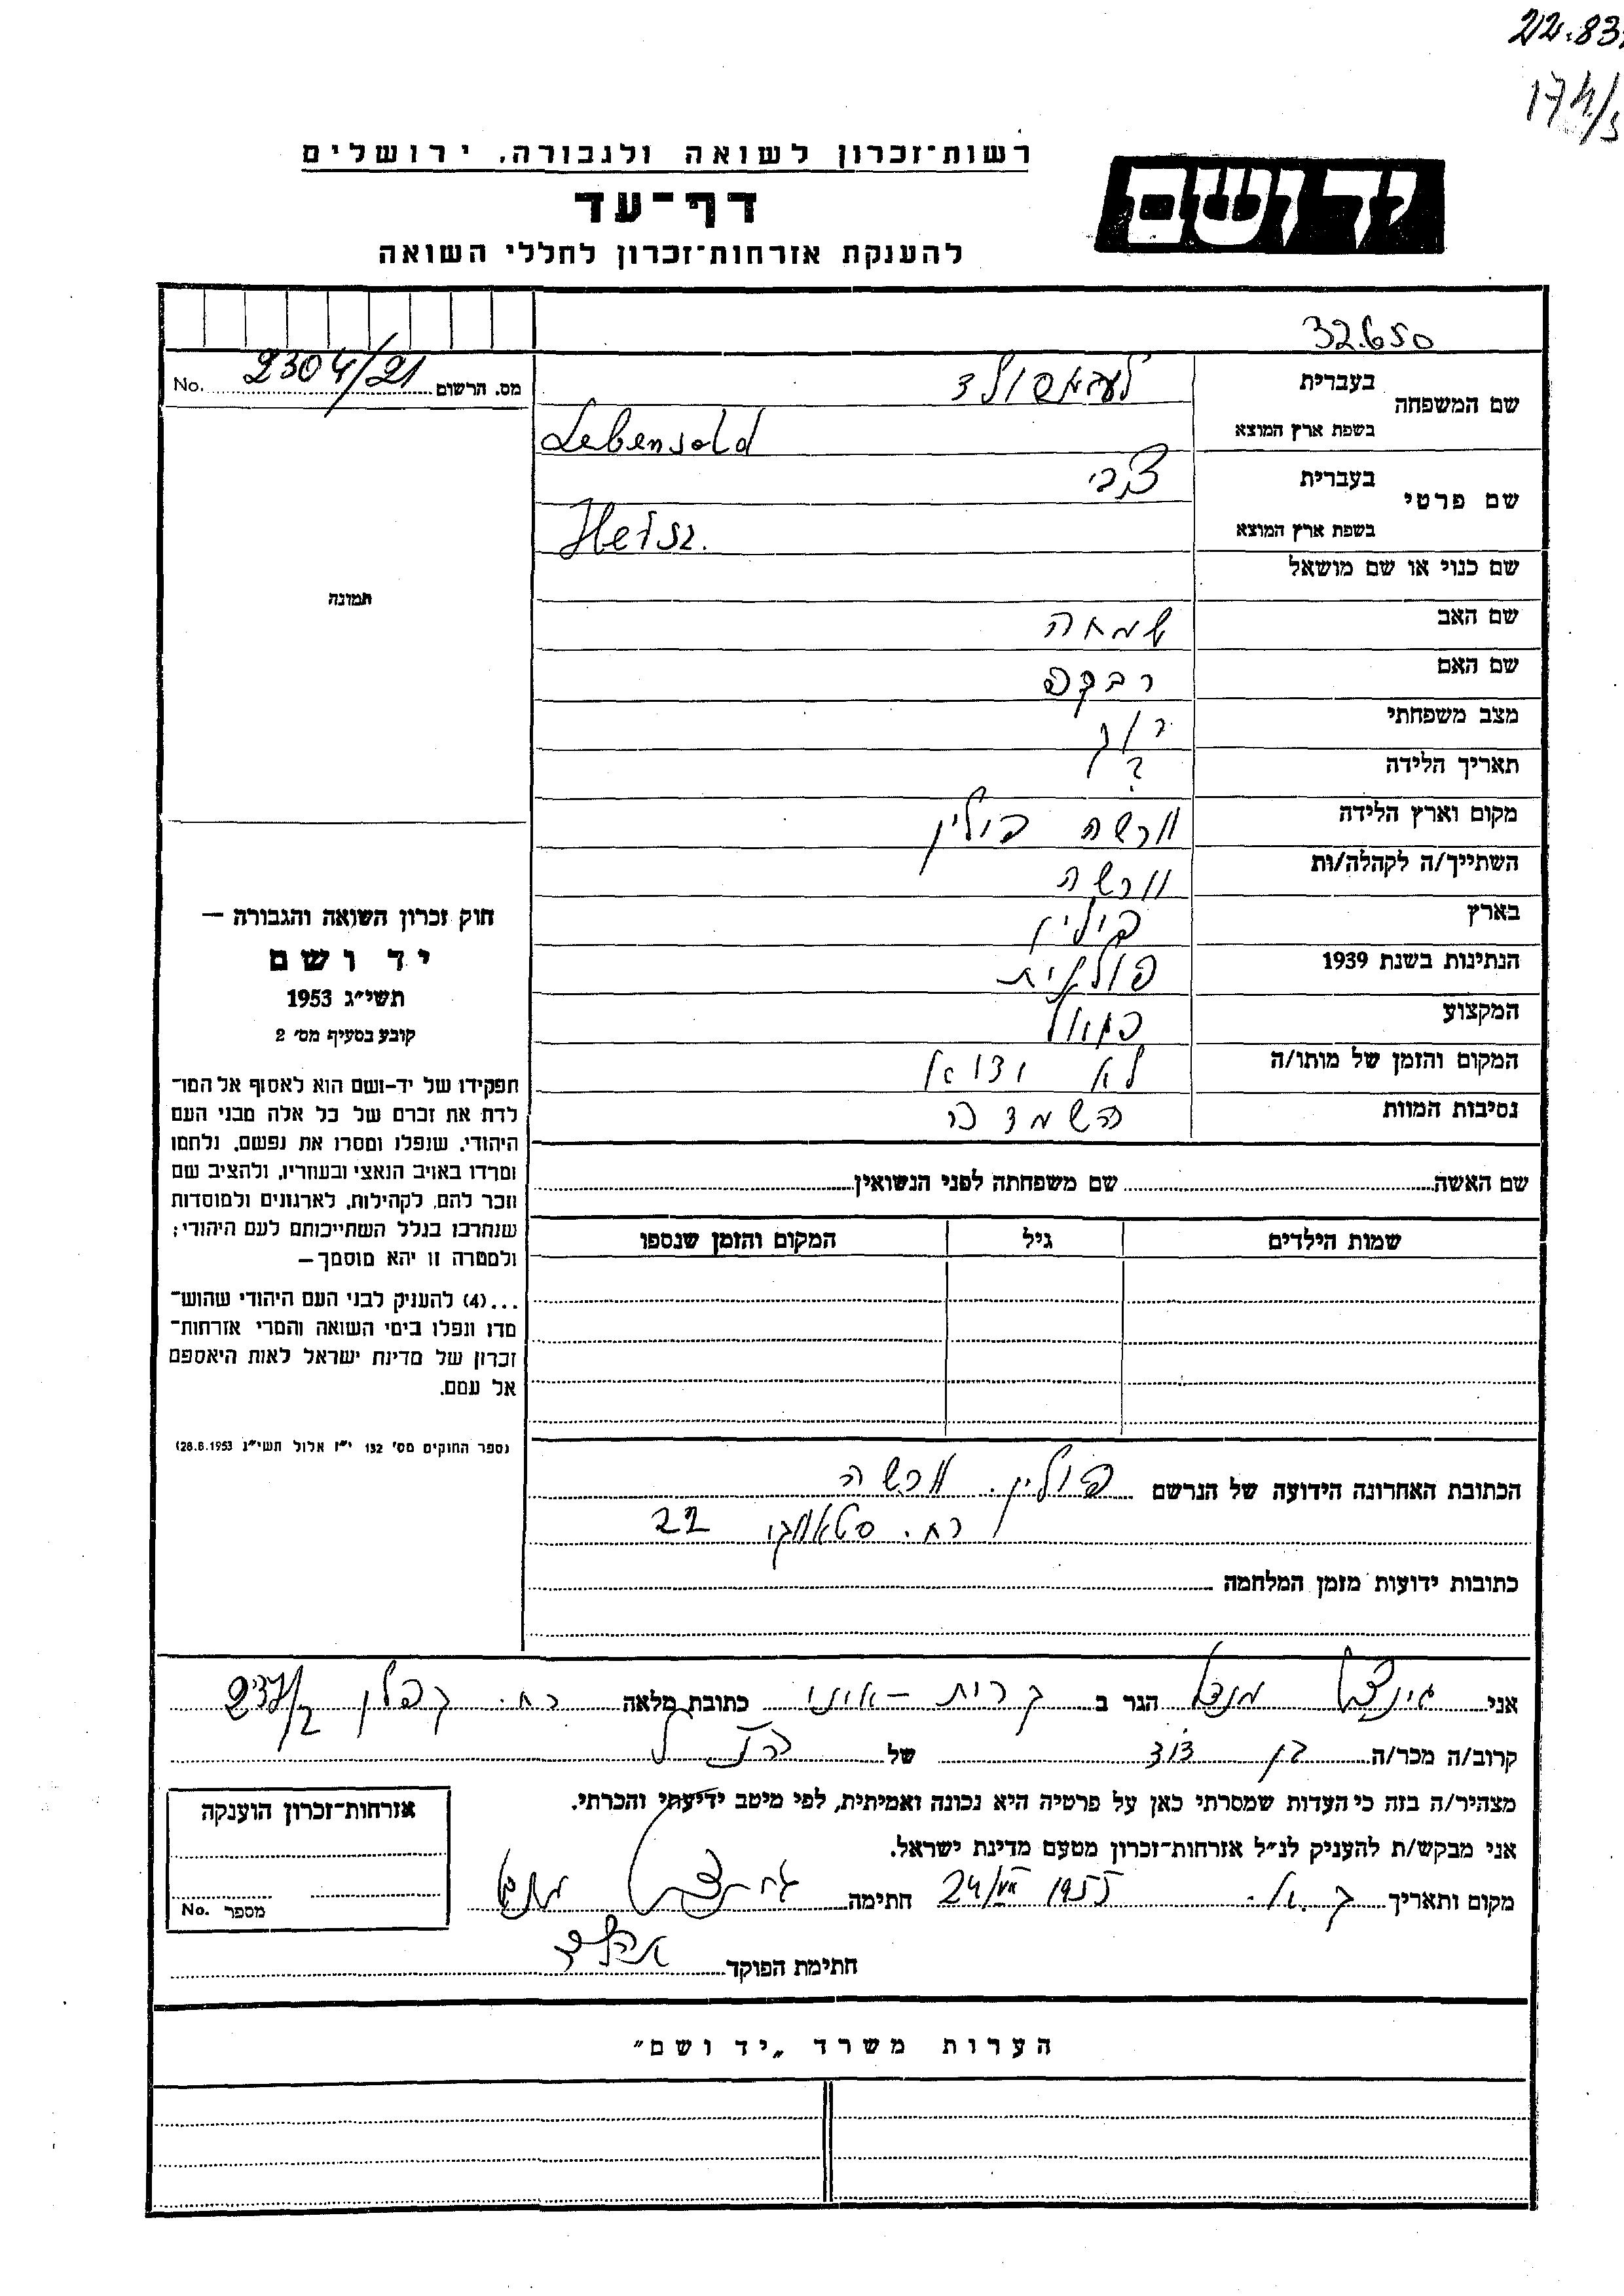 22.83
174/5
רשות־זכרון לשואה ולגבורה, ירושלים
יד ושם
דף־עד
להענקת אזרחות־זכרון לחללי השואה
32650
מס. הרשום 2304/21 No.
שם המשפחה
בעברית לעבענסולד
בשפת ארץ המוצא Lebensold
שם פרטי
בעברית צבי
בשפת ארץ המוצא Hersz.
שם כנוי או שם מושאל
תמונה
שם האב שמחה
שם האם רבקה
מצב משפחתי רווק
תאריך הלידה ?
מקום וארץ הלידה וורשה פולין
השתייך/ה לקהלה/ות וורשה
בארץ פולין
הנתינות בשנת 1939 פולנית
המקצוע
המקום והזמן של מותו/ה לא
נסיבות המוות
חוק זכרון השואה והגבורה —
יד ושם
תשי״ג 1953
קובע בסעיף מס׳ 2
תפקידו של יד-ושם הוא לאסוף אל המו־
לדת את זכרם של כל אלה מבני העם
היהודי, שנפלו ומסרו את נפשם, נלחמו
ומרדו באויב הנאצי ובעוזריו, ולהציב שם
וזכר להם, לקהילות, לארגונים ולמוסדות
שנחרבו בגלל השתייכותם לעם היהודי;
ולמטרה זו יהא מוסמך—
...(4) להעניק לבני העם היהודי שהוש־
מדו ונפלו בימי השואה והמרי אזרחות־
זכרון של מדינת ישראל לאות היאספם
אל עמם.
(ספר החוקים מס׳ 132 י״ז אלול תשי״ג 28.8.1953)
שם האשה שם משפחתה לפני הנשואין
שמות הילדים גיל המקום והזמן שנספו
הכתובת האחרונה הידועה של הנרשם פולין. וורשה
רח. 22
כתובות ידועות מזמן המלחמה
אני הגר ב קרית-אונו כתובת מלאה רח. קפלן 237/2
קרוב/ה מכר/ה בן דוד של הנ"ל
מצהיר/ה בזה כי העדות שמסרתי כאן על פרטיה היא נכונה ואמיתית, לפי מיטב ידיעתי והכרתי.
אני מבקש/ת להעניק לנ״ל אזרחות־זכרון מטעם מדינת ישראל.
מקום ותאריך ק.א. 24/VII 1955 חתימה
חתימת הפוקד
אזרחות־זכרון הוענקה
מספר No.
הערות משרד „יד ושם״